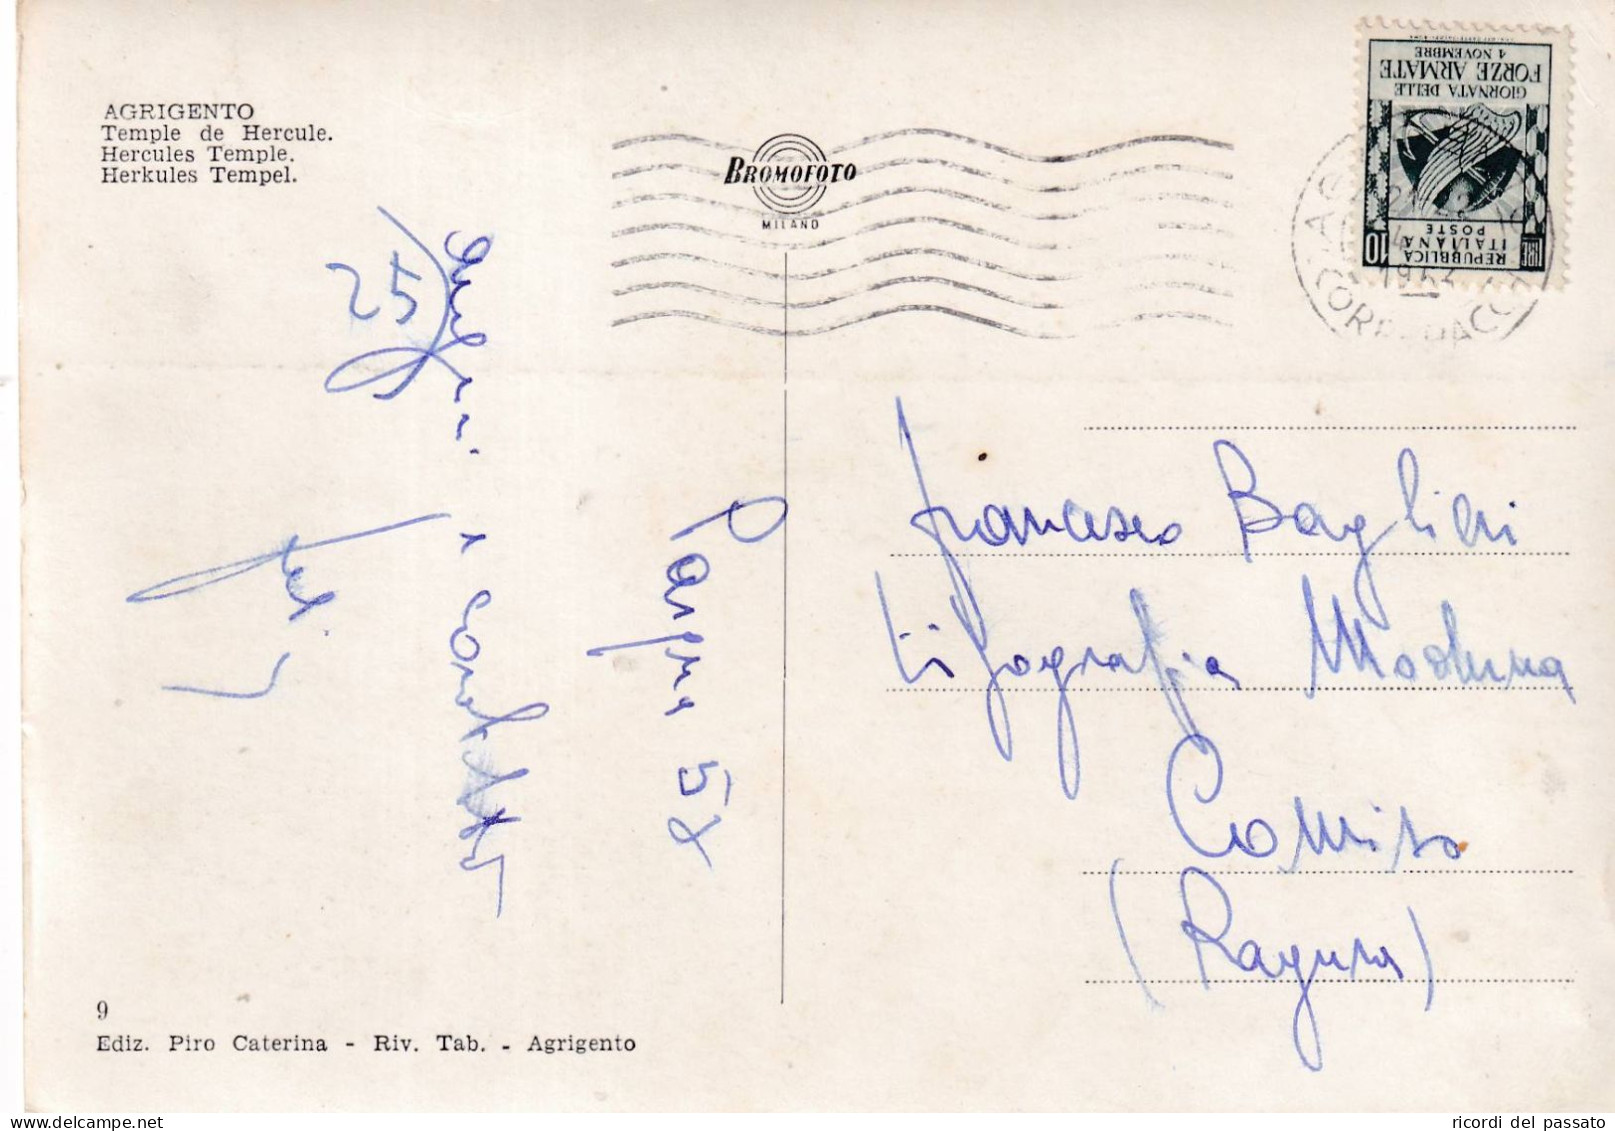 AGRIGENTO
Temple de Hercule.
Hercules Temple.
Herkules Tempel.
BROMOFOTO
MILANO
GIORNATA DELLE
FORZE ARMATE
4 NOVEMBRE
REPUBBLICA
ITALIANA
POSTE
LIRE 10
Pasqua 5
25
Francesco Baglieri
Tipografia Moderna
Comiso
(Ragusa)
9
Ediz. Piro Caterina - Riv. Tab. - Agrigento
ricordi del passato